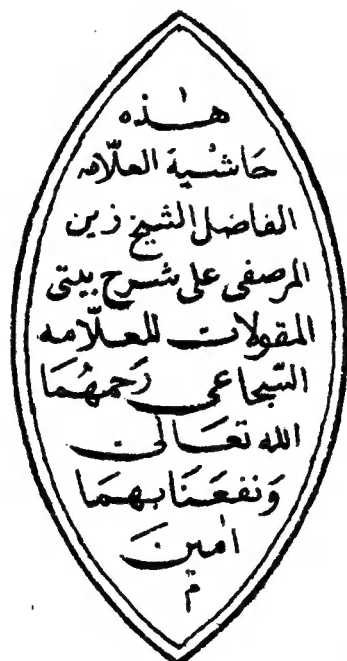 هذه
حَاشية العلّامه
الفاضل الشيخ زين
المرصفى على شرح بيتى
المقولات للعلّامه
السّجاعى رَحمهُمَا
الله تعَالى
وَنفعَنَا بهمَا
اٰمينَ
م